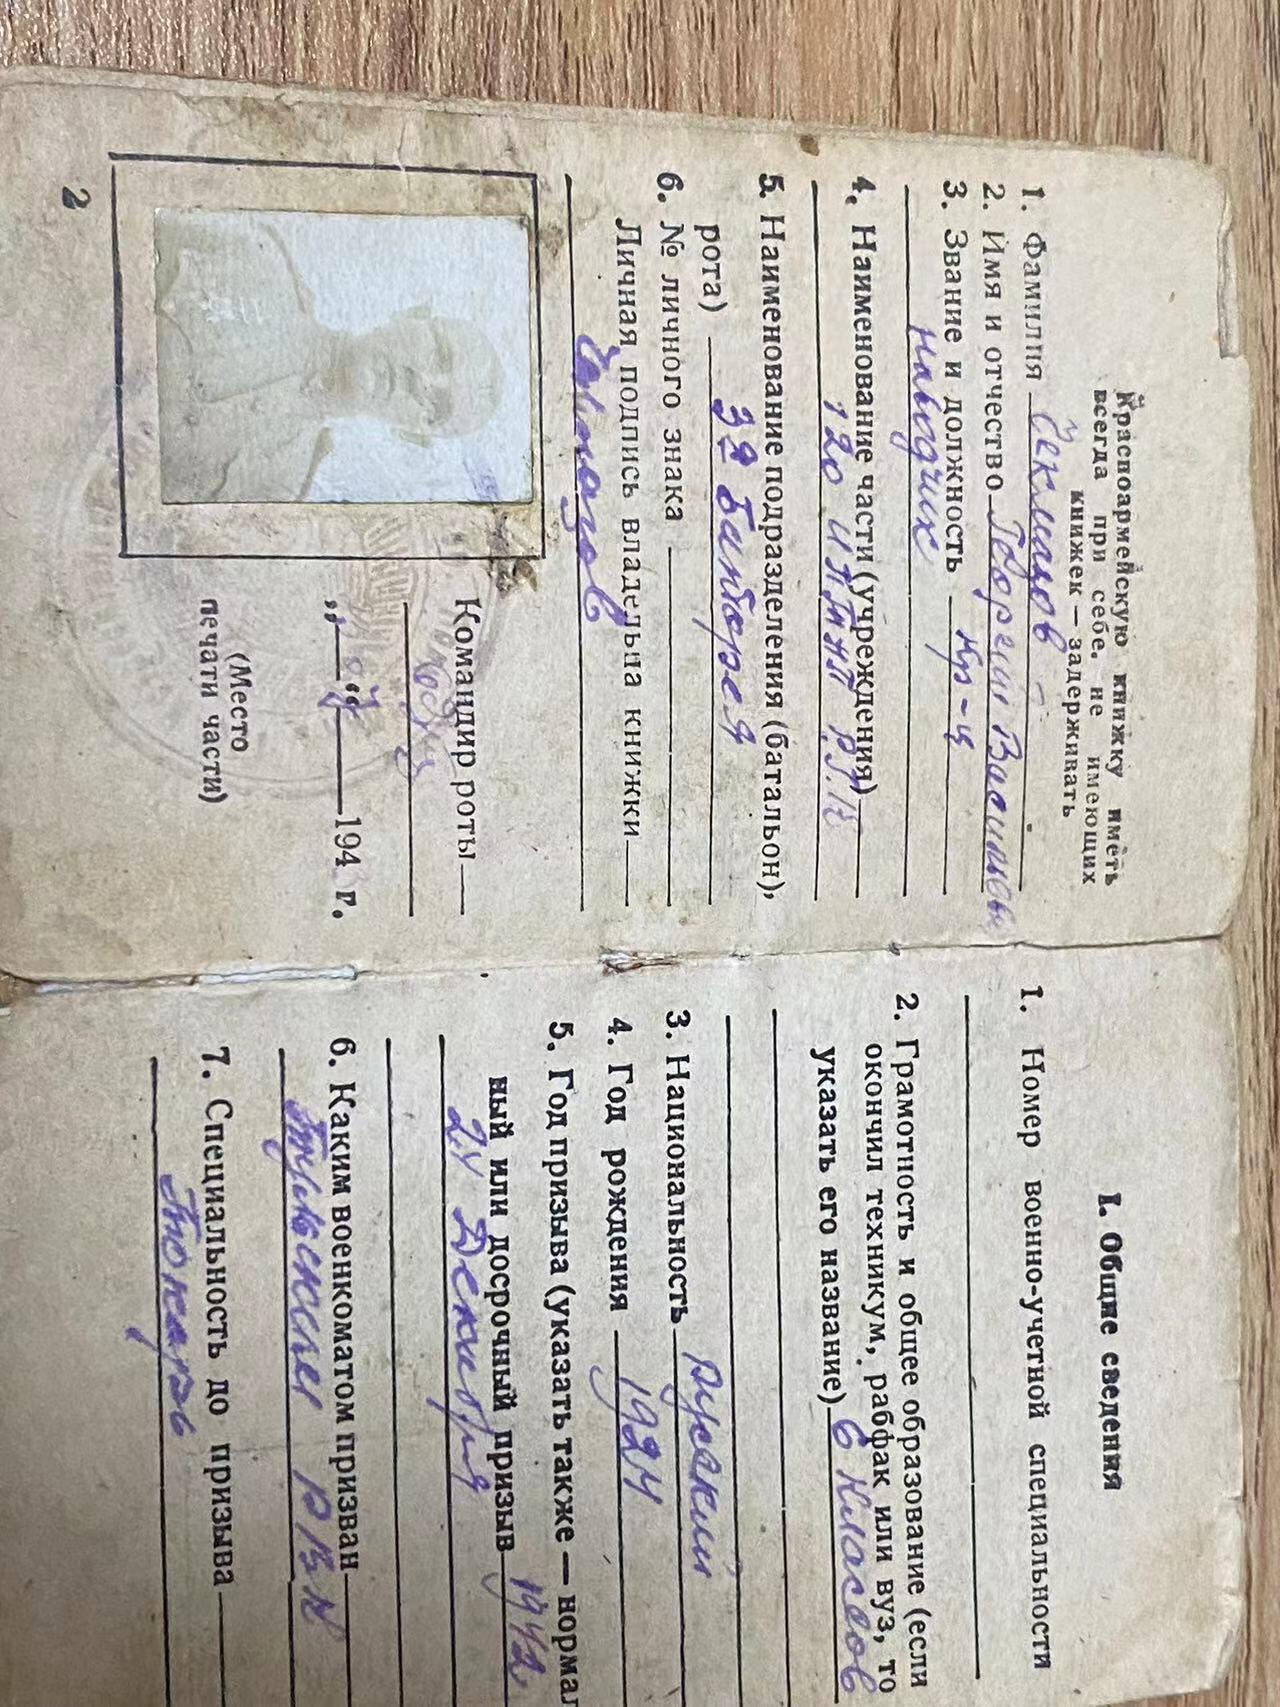 Красноармейскую книжку иметь
всегда при себе. не имеющих
книжек — задерживать
1. Фамилия
2. Имя и отчество Георгий
3. Звание и должность кр-ц
наводчик
4. Наименование части (учреждения)
120 ИПТАП РГК
5. Наименование подразделения (батальон),
рота) 3я батарея
6. № личного знака
Личная подпись владельца книжки
Командир роты
„ “ 194 г.
(Место
печати части)
2
I. Общие сведения
1. Номер военно-учетной специальности
2. Грамотность и общее образование (если
окончил техникум, рабфак или вуз, то
указать его название) 6 класов
3. Национальность русский
4. Год рождения 1924
5. Год призыва (указать также — нормал
ный или досрочный призыв 1942
24 Декабря
6. Каким военкоматом призван
РВК
7. Специальность до призыва
Токарь